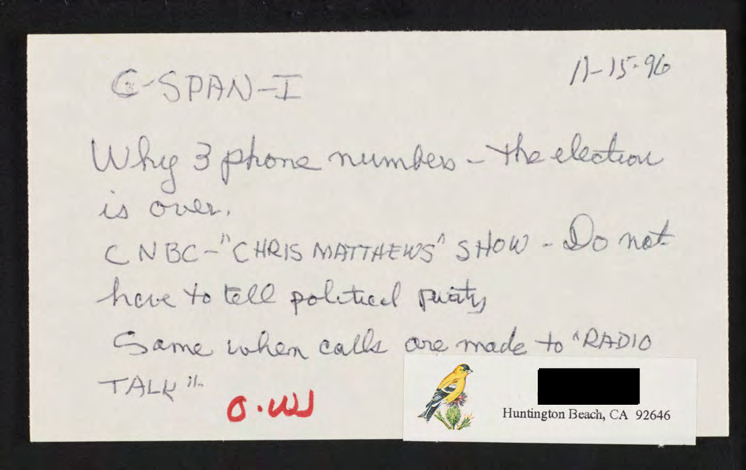 C-SPAN-I
11-15-96
Why 3 phone numbers - the election
is over.
CNBC-"CHRIS MATTHEWS" SHOW - Do not
have to tell political party
Same when calls are made to "RADIO
TALK".
O.W
Huntington Beach, CA 92646